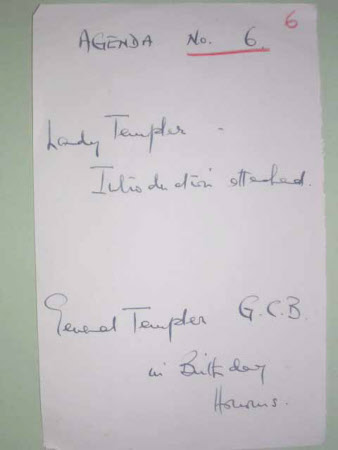 6
AGENDA No. 6.
Lady Templer -
Introduction attached.
General Templer G.C.B.
in Birthday
Honours.